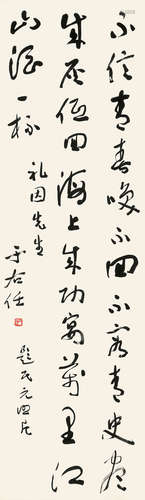 不信青春唤不回不容青史尽
成灰低回海上成功宴万里江
山酒一杯
礼因先生
于右任
题民元照片